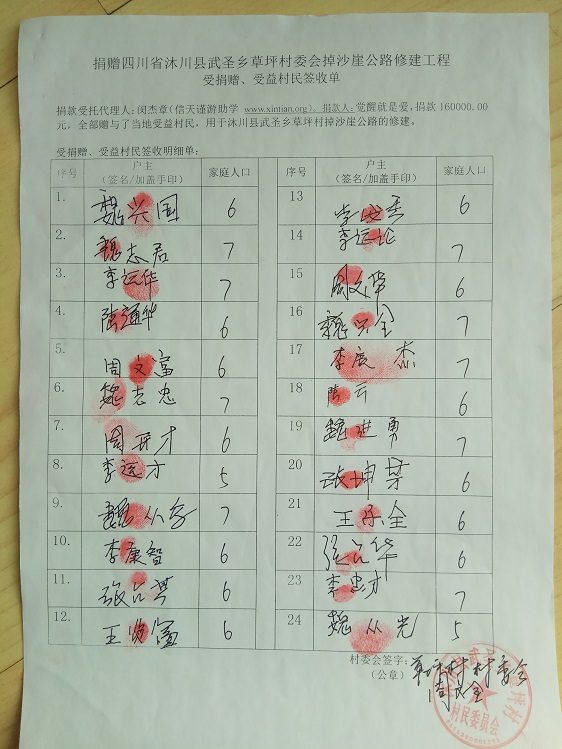 捐赠四川省沐川县武圣乡草坪村委会掉沙崖公路修建工程
受捐赠、受益村民签收单
捐款受托代理人：闵杰章（信天谨游助学 www.xintian.org）。捐款人：觉醒就是爱，捐款 160000.00
元，全部赠与了当地受益村民，用于沐川县武圣乡草坪村掉沙崖公路的修建。
受捐赠、受益村民签收明细单：
序号 户主（签名/加盖手印） 家庭人口
1. 魏兴国 6
2. 魏志君 7
3. 李运华 7
4. 陈通华 6
5. 周文富 6
6. 魏志忠 7
7. 周开才 6
8. 李远才 5
9. 魏从学 7
10. 李康智 6
11. 6
12. 王富 6
序号 户主（签名/加盖手印） 家庭人口
13 李 6
14 李运论 7
15 周文荣 6
16 魏兴全 7
17 李庆杰 7
18 陈云 6
19 魏进勇 7
20 坤 6
21 王全 6
22 张华 6
23 李忠才 7
24 魏从光 5
村委会签字：草坪村村委会
（公章） 周文全
村民委员会